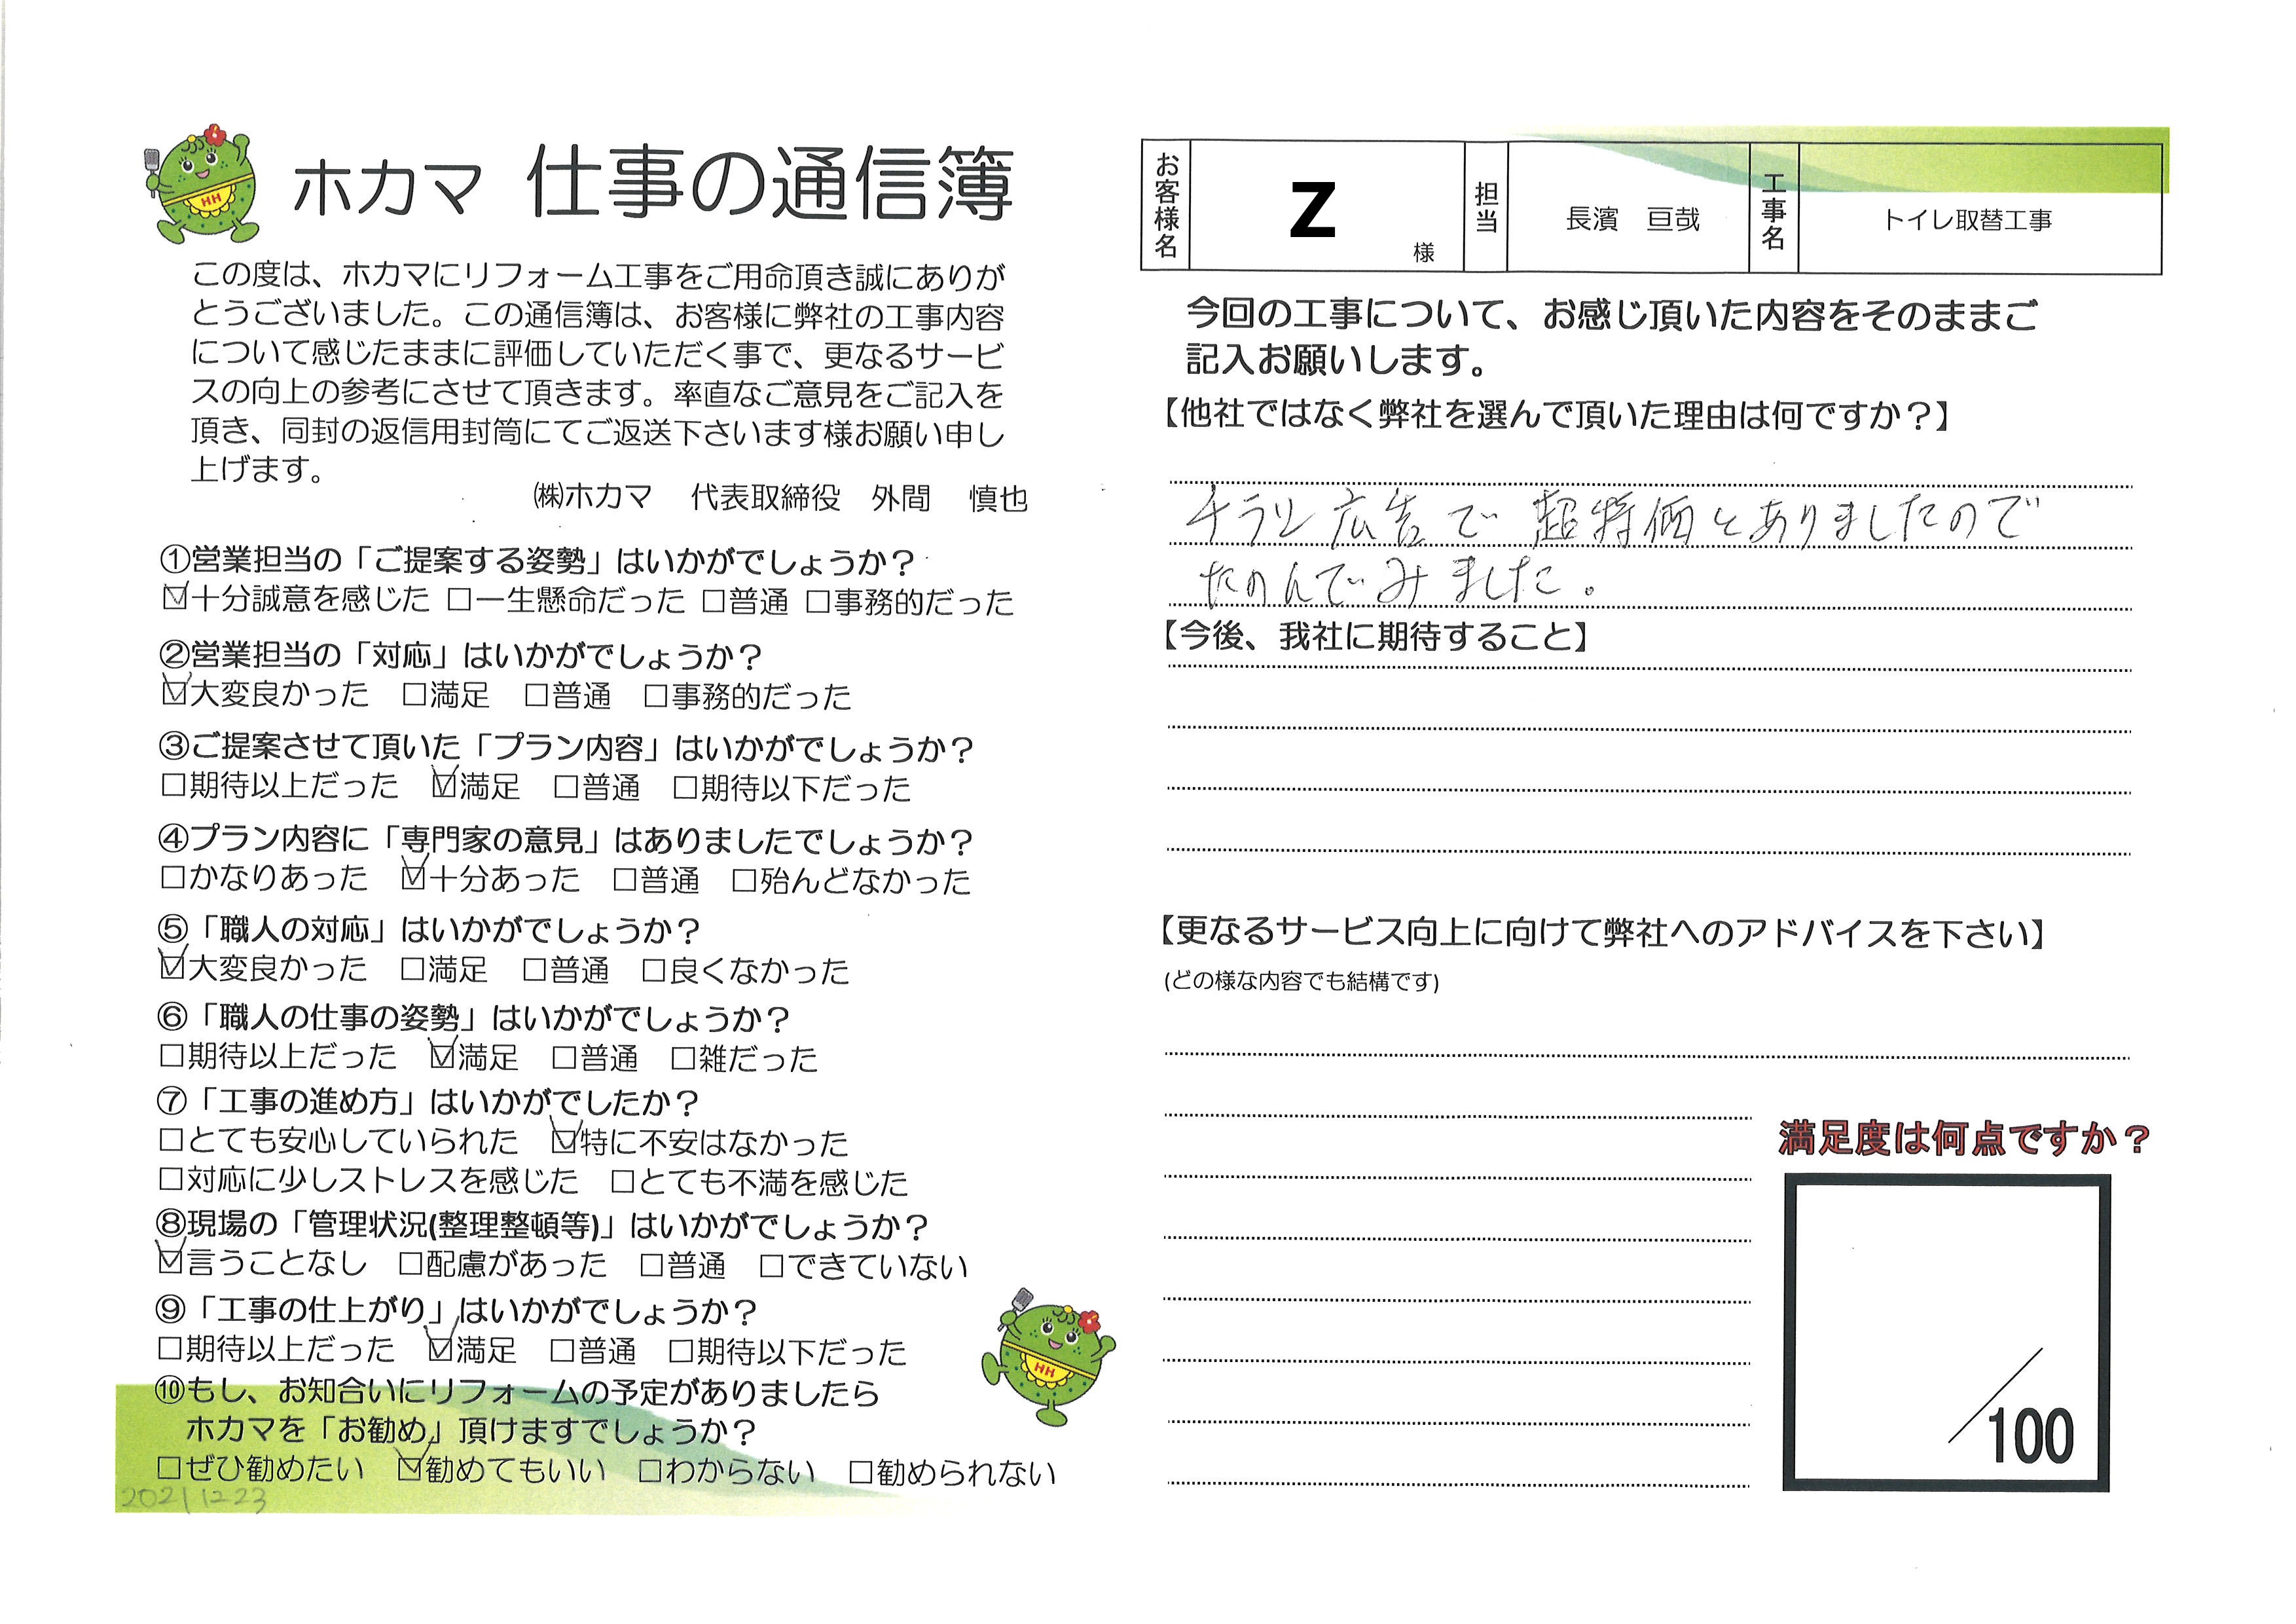 ホカマ 仕事の通信簿
この度は、ホカマにリフォーム工事をご用命頂き誠にありが
とうございました。この通信簿は、お客様に弊社の工事内容
について感じたままに評価していただく事で、更なるサービ
スの向上の参考にさせて頂きます。率直なご意見をご記入を
頂き、同封の返信用封筒にてご返送下さいます様お願い申し
上げます。
㈱ホカマ 代表取締役 外間 慎也
①営業担当の「ご提案する姿勢」はいかがでしょうか？
☑十分誠意を感じた □一生懸命だった □普通 □事務的だった
②営業担当の「対応」はいかがでしょうか？
☑大変良かった □満足 □普通 □事務的だった
③ご提案させて頂いた「プラン内容」はいかがでしょうか？
□期待以上だった ☑満足 □普通 □期待以下だった
④プラン内容に「専門家の意見」はありましたでしょうか？
□かなりあった ☑十分あった □普通 □殆んどなかった
⑤「職人の対応」はいかがでしょうか？
☑大変良かった □満足 □普通 □良くなかった
⑥「職人の仕事の姿勢」はいかがでしょうか？
□期待以上だった ☑満足 □普通 □雑だった
⑦「工事の進め方」はいかがでしたか？
□とても安心していられた ☑特に不安はなかった
□対応に少しストレスを感じた □とても不満を感じた
⑧現場の「管理状況(整理整頓等)」はいかがでしょうか？
☑言うことなし □配慮があった □普通 □できていない
⑨「工事の仕上がり」はいかがでしょうか？
□期待以上だった ☑満足 □普通 □期待以下だった
⑩もし、お知合いにリフォームの予定がありましたら
ホカマを「お勧め」頂けますでしょうか？
□ぜひ勧めたい ☑勧めてもいい □わからない □勧められない
2021 12 23
HH
HH
お客様名 Z 様 担当 長濱 亘哉 工事名 トイレ取替工事
今回の工事について、お感じ頂いた内容をそのままご
記入お願いします。
【他社ではなく弊社を選んで頂いた理由は何ですか？】
チラシ広告で超特価とありましたので
たのんでみました。
【今後、我社に期待すること】
【更なるサービス向上に向けて弊社へのアドバイスを下さい】
(どの様な内容でも結構です)
満足度は何点ですか？
／100